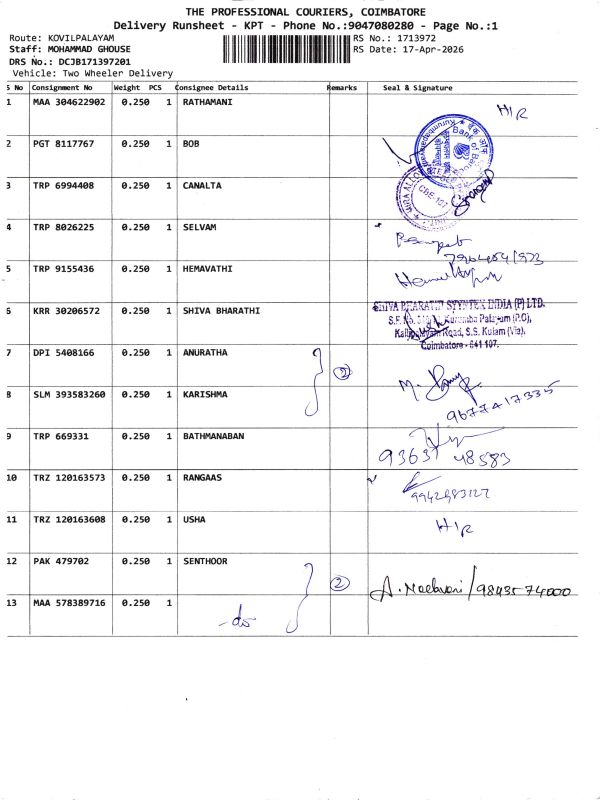 THE PROFESSIONAL COURIERS, COIMBATORE
Delivery Runsheet - KPT - Phone No.:9047080280 - Page No.:1
Route: KOVILPALAYAM
RS No.: 1713972
Staff: MOHAMMAD GHOUSE
RS Date: 17-Apr-2026
DRS No.: DCJB171397201
Vehicle: Two Wheeler Delivery
S No Consignment No Weight PCS Consignee Details Remarks Seal & Signature
1 MAA 304622902 0.250 1 RATHAMANI H/R
2 PGT 8117767 0.250 1 BOB
Bank of Baroda
3 TRP 6994408 0.250 1 CANALTA
CBE-107
4 TRP 8026225 0.250 1 SELVAM
5 TRP 9155436 0.250 1 HEMAVATHI
6 KRR 30206572 0.250 1 SHIVA BHARATHI
SHIVA BHARATHI SYNTEX INDIA (P) LTD.
Kurumba Palayam (P.O),
Kalipalayam Road, S.S. Kulam (Via),
Coimbatore - 641 107.
7 DPI 5408166 0.250 1 ANURATHA
2
8 SLM 393583260 0.250 1 KARISHMA
M.
9677417335
9 TRP 669331 0.250 1 BATHMANABAN
93631 48583
10 TRZ 120163573 0.250 1 RANGAAS
11 TRZ 120163608 0.250 1 USHA H/R
12 PAK 479702 0.250 1 SENTHOOR
2
/ 98435 74000
13 MAA 578389716 0.250 1
-do